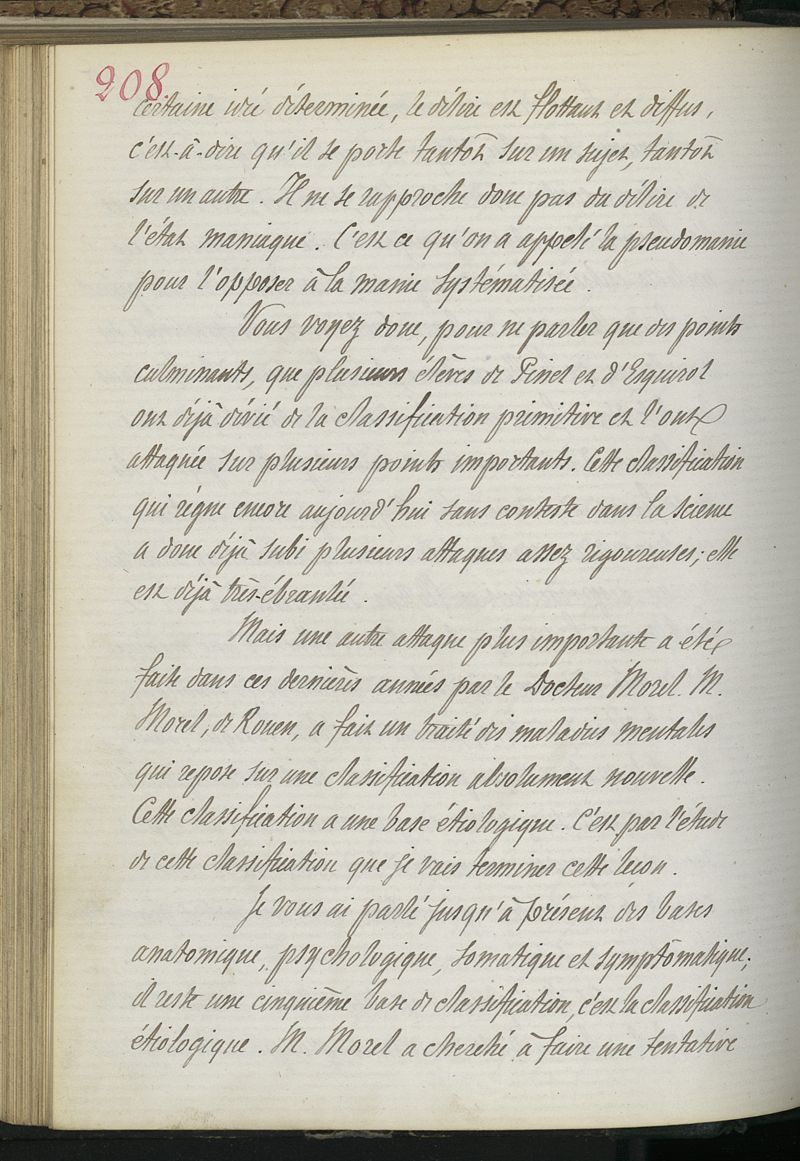 208
certaine idée déterminée, le délire est flottant et diffus,
c'est-à-dire qu'il se porte tantôt sur un sujet, tantôt
sur un autre. Il ne se rapproche donc pas du délire de
l'état maniaque. C'est ce qu'on a appelé la pseudomanie
pour l'opposer à la manie systématisée.
Vous voyez donc, pour ne parler que des points
culminants, que plusieurs élèves de Pinel et d'Esquirol
ont déjà dévié de la classification primitive et l'ont
attaquée sur plusieurs points importants. Cette classification
qui règne encore aujourd'hui sans conteste dans la science
a donc déjà subi plusieurs attaques assez rigoureuses; elle
est déjà très-ébranlée.
Mais une autre attaque plus importante a été
faite dans ces dernières années par le Docteur Morel. M.
Morel, de Rouen, a fait un traité des maladies mentales
qui repose sur une classification absolument nouvelle.
Cette classification a une base étiologique. C'est par l'étude
de cette classification que je vais terminer cette leçon.
Je vous ai parlé jusqu'à présent des bases
anatomique, psychologique, somatique et symptômatique;
il reste une cinquième base de classification, c'est la classification
étiologique. M. Morel a cherché à faire une tentative